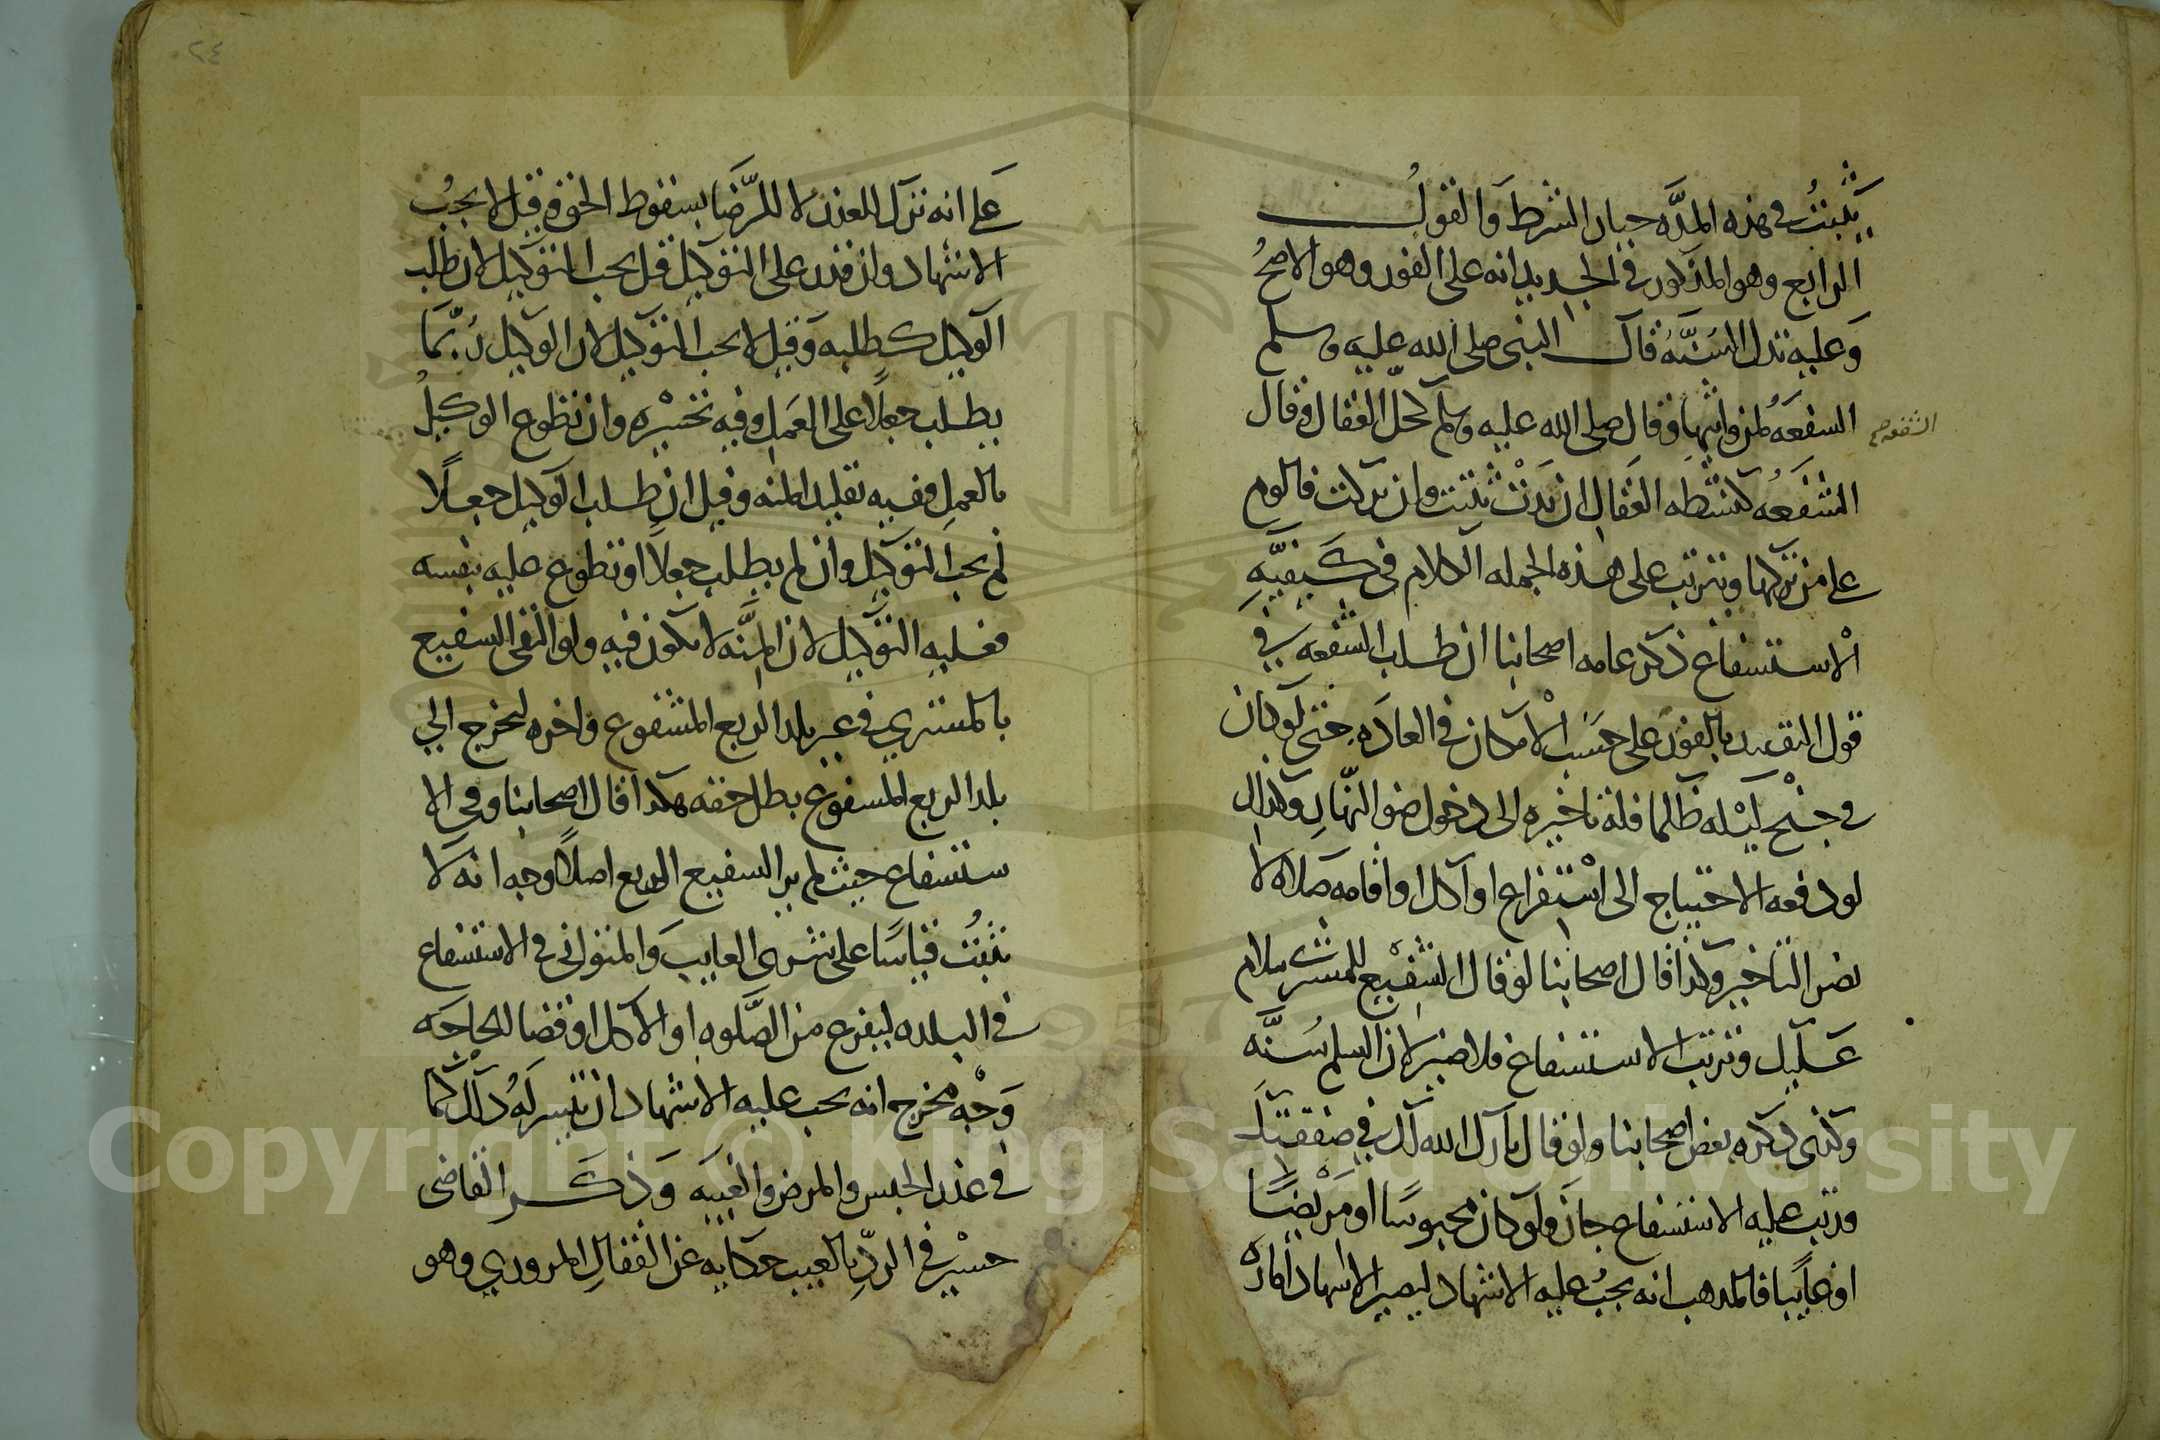 يثبت في هذه المدة خيار الشرط والقول
الرابع وهو المذكور في الجديد انه على الفور وهو الاصح
وعليه تدل السنة قال النبي صلى الله عليه وسلم
السفعه لمن واثبها وقال صلى الله عليه وسلم كحل العقال وقال
الشفعه صح
الشفعه كنشطه العقال ان قيدت ثبتت وان تركت فاللوم
على من تركها ويترتب على هذه الجمله الكلام في كيفيه
الاستشفاع ذكر عامه اصحابنا ان طلب الشفعه في
قول التقييد بالفور على حسب الامكان في العاده حتى لو كان
في جنح ليله ظلما فله تاخيره الى دخول ضو النهار وكذلك
لو دفعه الاحتياج الى استفراغ او اكل او اقامه صلاه لا
يضر التاخير وكذا قال اصحابنا لو قال الشفيع للمشتري سلام
عليك وترتب الاستشفاع فلا ضير لان السلم سنه
وكتبي ذكره بعض اصحابنا ولو قال بارك الله لك في صفقتك
ورتب عليه الاستشفاع جاز ولو كان محبوسا او مريضا
او غايبا فالمذهب انه يجب عليه الاشهاد ليصير الاشهاد اماره
٢٤
على انه ترك للعذر لا للرضا بسقوط الحق وقيل لا يجب
الاشهاد وان قدر على التوكيل قيل يجب التوكيل لان طلب
الوكيل كطلبه وقيل لا يجب التوكيل لان الوكيل ربما
يطلب جعلا على العمل وفيه تخسيره وان تطوع الوكيل
بالعمل ففيه تقليد المنه وقيل ان طلب الوكيل جعلا
لم يجب التوكيل وان لم يطلب جعلا او تطوع عليه بنفسه
فعليه التوكيل لان المنه لا تكون فيه ولو التقى السفيع
بالمستري في غير بلد الربع المشفوع واخره ليخرج الى
بلد الربع المسفوع بطل حقه هكذا قال اصحابنا وفي الا
ستشفاع حيث لم ير السفيع الربع اصلا وجه انه لا
يثبت قياسا على شرى الغايب والمتواني في الاستشفاع
في البلده ليفرغ من الصلوه او الاكل او قضا الحاجه
وجه مخرج انه يجب عليه الاشهاد ان تيسر له ذلك كما
في عذر الحبس والمرض والغيبه وذكر القاضى
حسين في الرد بالعيب حكايه عن القفال المروزي وهو
Copyright © King Saud University
1957